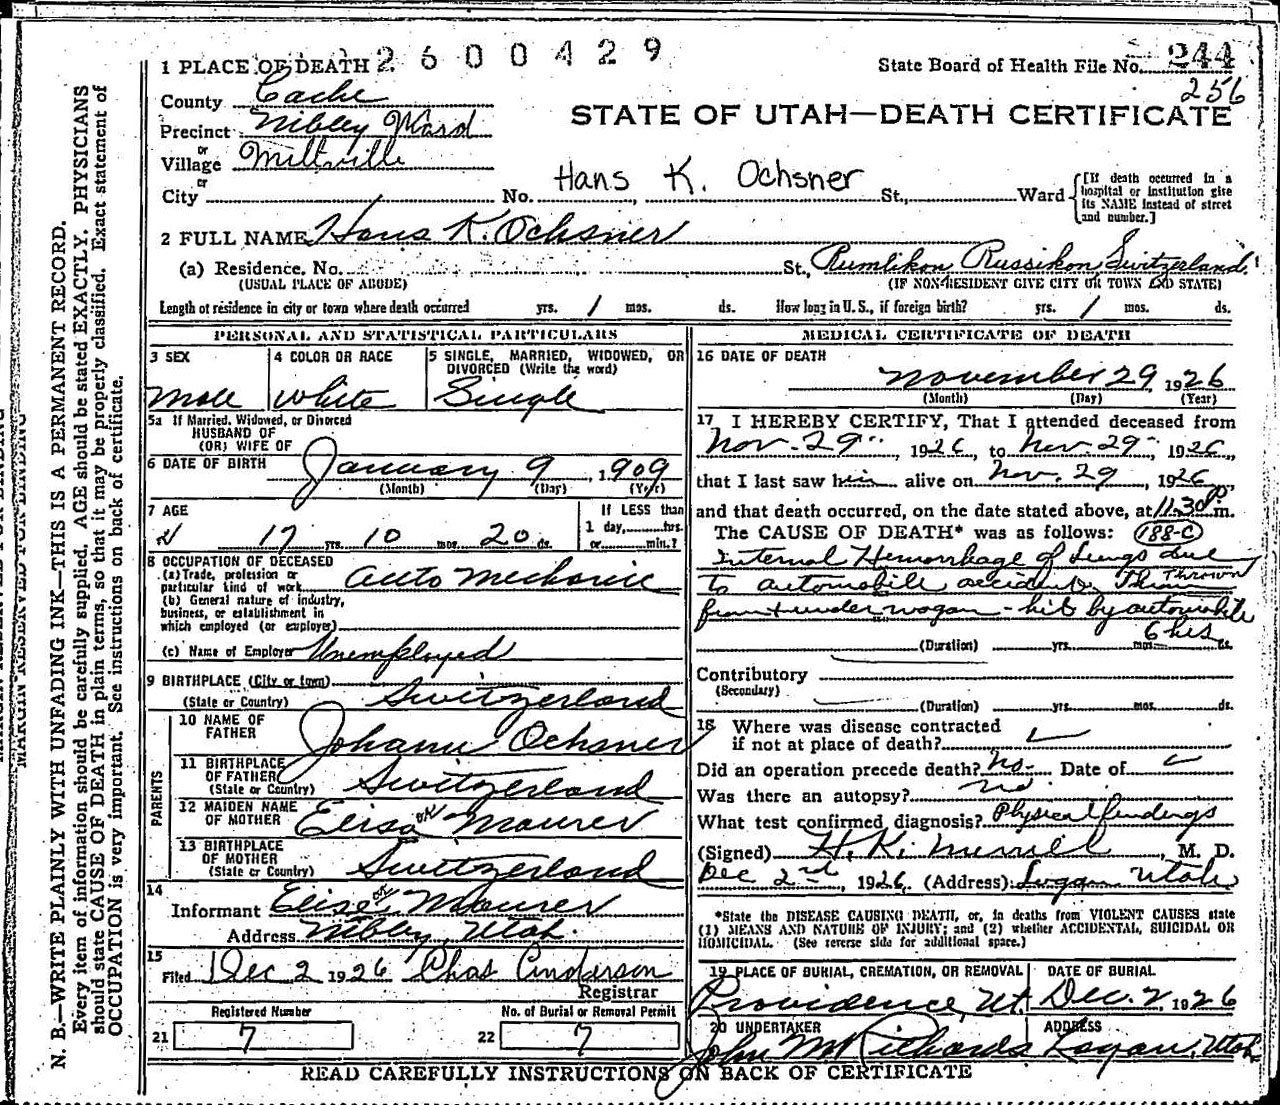 1 PLACE OF DEATH 2600429
State Board of Health File No. 244
256
County Cache
STATE OF UTAH—DEATH CERTIFICATE
Precinct Nibley Ward
or
Village Millville
or
City No. Hans K. Ochsner St., Ward
[If death occurred in a hospital or institution give its NAME instead of street and number.]
2 FULL NAME Hans K. Ochsner
(a) Residence. No. St., Rumlikon Russikon Switzerland
(USUAL PLACE OF ABODE) (IF NON-RESIDENT GIVE CITY OR TOWN AND STATE)
Length of residence in city or town where death occurred yrs. 1 mos. ds. How long in U. S., if foreign birth? yrs. 1 mos. ds.
PERSONAL AND STATISTICAL PARTICULARS
3 SEX 4 COLOR OR RACE 5 SINGLE, MARRIED, WIDOWED, OR DIVORCED (Write the word)
Male White Single
5a If Married, Widowed, or Divorced
HUSBAND OF
(OR) WIFE OF
6 DATE OF BIRTH January 9, 1909
(Month) (Day) (Year)
7 AGE If LESS than
17 yrs. 10 mos. 20 ds. 1 day, hrs. or min.?
8 OCCUPATION OF DECEASED
(a) Trade, profession or particular kind of work Auto Mechanic
(b) General nature of industry, business, or establishment in which employed (or employer)
(c) Name of Employer Unemployed
9 BIRTHPLACE (City or town)
(State or Country) Switzerland
PARENTS
10 NAME OF FATHER Johann Ochsner
11 BIRTHPLACE OF FATHER (State or Country) Switzerland
12 MAIDEN NAME OF MOTHER Elisa OK Maurer
13 BIRTHPLACE OF MOTHER (State or Country) Switzerland
14 Informant Elise OK Maurer
Address Nibley, Utah.
15 Filed Dec 2 1926 Chas Anderson
Registrar
Registered Number No. of Burial or Removal Permit
21 7 22 7
MEDICAL CERTIFICATE OF DEATH
16 DATE OF DEATH
November 29 1926
(Month) (Day) (Year)
17 I HEREBY CERTIFY, That I attended deceased from
Nov. 29, 1926, to Nov. 29, 1926,
that I last saw him alive on Nov. 29, 1926,
and that death occurred, on the date stated above, at 11:30 P m.
The CAUSE OF DEATH* was as follows: 188-C
Internal Hemorrhage of Lungs due
to automobile accident Thrown Thrown
from & under wagon - hit by automobile
6 hrs
(Duration) yrs. mos. ds.
Contributory
(Secondary)
(Duration) yrs. mos. ds.
18 Where was disease contracted
if not at place of death?
Did an operation precede death? No. Date of
Was there an autopsy? No
What test confirmed diagnosis? Physical findings
(Signed) H. K. Merrill, M. D.
Dec 2nd, 1926 (Address) Logan Utah
*State the DISEASE CAUSING DEATH, or, in deaths from VIOLENT CAUSES state
(1) MEANS AND NATURE OF INJURY; and (2) whether ACCIDENTAL, SUICIDAL OR
HOMICIDAL. (See reverse side for additional space.)
19 PLACE OF BURIAL, CREMATION, OR REMOVAL DATE OF BURIAL
Providence, Ut. Dec. 2 1926
20 UNDERTAKER ADDRESS
John M Richards Logan, Utah
READ CAREFULLY INSTRUCTIONS ON BACK OF CERTIFICATE
MARGIN RESERVED FOR BINDING
N. B.—WRITE PLAINLY WITH UNFADING INK—THIS IS A PERMANENT RECORD.
Every item of information should be carefully supplied. AGE should be stated EXACTLY. PHYSICIANS
should state CAUSE OF DEATH in plain terms, so that it may be properly classified. Exact statement of
OCCUPATION is very important. See instructions on back of certificate.